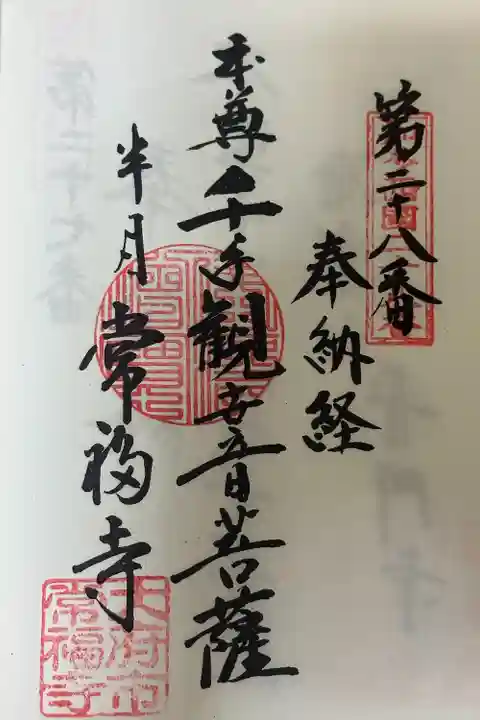 第二十八番
奉納経
本尊千手觀世音菩薩
半月常福寺
大府市
常福寺